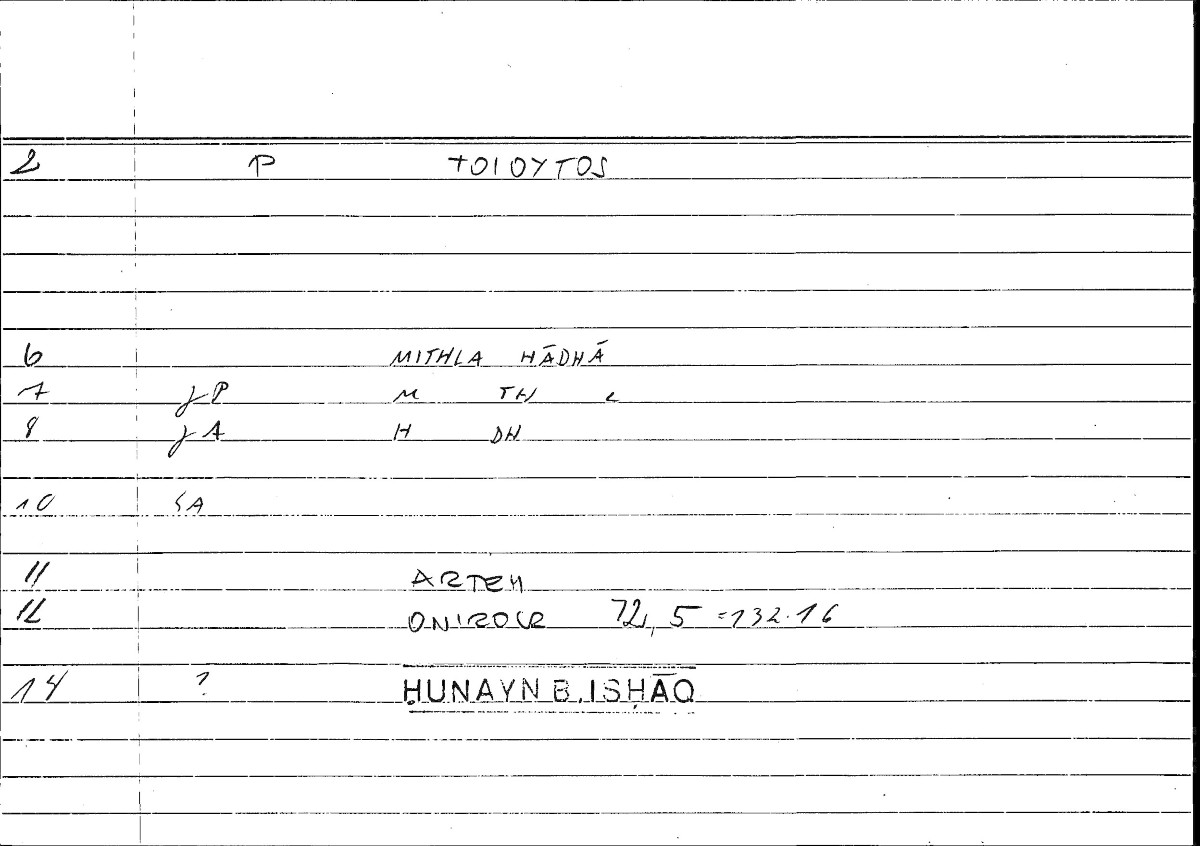 2 P TOIOYTOS
6 MITHLA HĀDHĀ
7 JP M TH L
8 JA H DH
10 SA
11 ARTEM
12 ONIROCR 72, 5 =132.16
14 ? ḤUNAYN B. ISḤĀQ